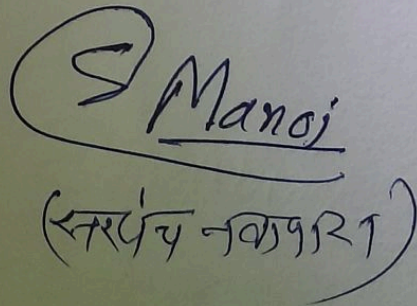 S Manoj
(सरपंच नवापारा)